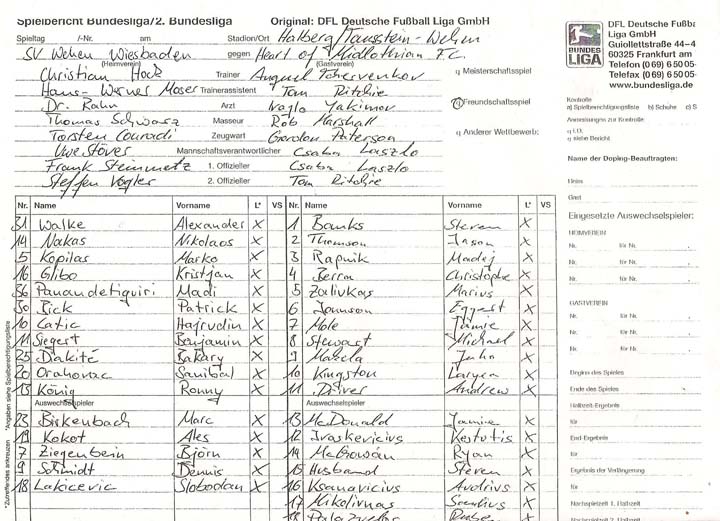 Spielbericht Bundesliga/2. Bundesliga Original: DFL Deutsche Fußball Liga GmbH
Spieltag /-Nr. am Stadion/Ort Halberg/Taunsstein-Wehen
SV Wehen Wiesbaden gegen Heart of Midlothian F.C.
(Heimverein) (Gastverein)
Christian Hock Trainer August Tchervenkov
Hans-Werner Moser Trainerassistent Tom Ritchie
Dr. Rahn Arzt Ivajlo Yakimov
Thomas Schwarz Masseur Rob Marshall
Torsten Conradi Zeugwart Gordon Paterson
Uwe Stöver Mannschaftsverantwortlicher Csaba Laszlo
Frank Steinmetz 1. Offizieller Csaba Laszlo
Steffen Vogler 2. Offizieller Tom Ritchie
q Meisterschaftsspiel
q Freundschaftsspiel
q Anderer Wettbewerb:
Nr. Name Vorname L* VS Nr. Name Vorname L* VS
31 Walke Alexander X 1 Banks Steven X
14 Nakas Nikolaos X 2 Thomson Jason X
5 Kopilas Marko X 3 Rapnik Madej X
16 Glibo Kristjan X 4 Berra Christophe X
36 Panandetiguiri Madi X 5 Zaliukas Marius X
30 Bick Patrick X 6 Jonsson Eggert X
10 Catic Hajrudin X 7 Mole Jamie X
11 Siegert Benjamin X 8 Stewart Michael X
25 Diakité Bakary X 9 Makela Juho X
20 Orahovac Sanibal X 10 Kingston Laryea X
13 König Ronny X 11 Driver Andrew X
Auswechselspieler Auswechselspieler
23 Birkenbach Marc X 13 McDonald Jamie X
19 Kokot Ales X 12 Ivaskevicius Kestutis X
7 Ziegenbein Björn X 14 McGrowan Ryan X
9 Schmidt Dennis X 15 Husband Steven X
18 Lakicevic Slobodan X 16 Ksanavicius Audrius X
17 Mikoliunas Saulius X
18
*Zutreffendes ankreuzen *Angaben siehe Spielberechtigungsliste
BUNDES LIGA
DFL Deutsche Fußba
Liga GmbH
Guiollettstraße 44-4
60325 Frankfurt am
Telefon (0 69) 6 50 05
Telefax (0 69) 6 50 05-
www.bundesliga.de
Kontrolle
a) Spielberechtigungsliste b) Schuhe c) S
Anmerkungen zur Kontrolle
q i.O.
q siehe Bericht
Name der Doping-Beauftragten:
Heim
Gast
Eingesetzte Auswechselspieler:
HEIMVEREIN
Nr. für Nr.
Nr. für Nr.
Nr. für Nr.
GASTVEREIN
Nr. für Nr.
Nr. für Nr.
Nr. für Nr.
Beginn des Spieles
Ende des Spieles
Halbzeit-Ergebnis
für
End-Ergebnis
für
Ergebnis der Verlängerung
für
Nachspielzeit 1. Halbzeit
Nachspielzeit 2. Halb